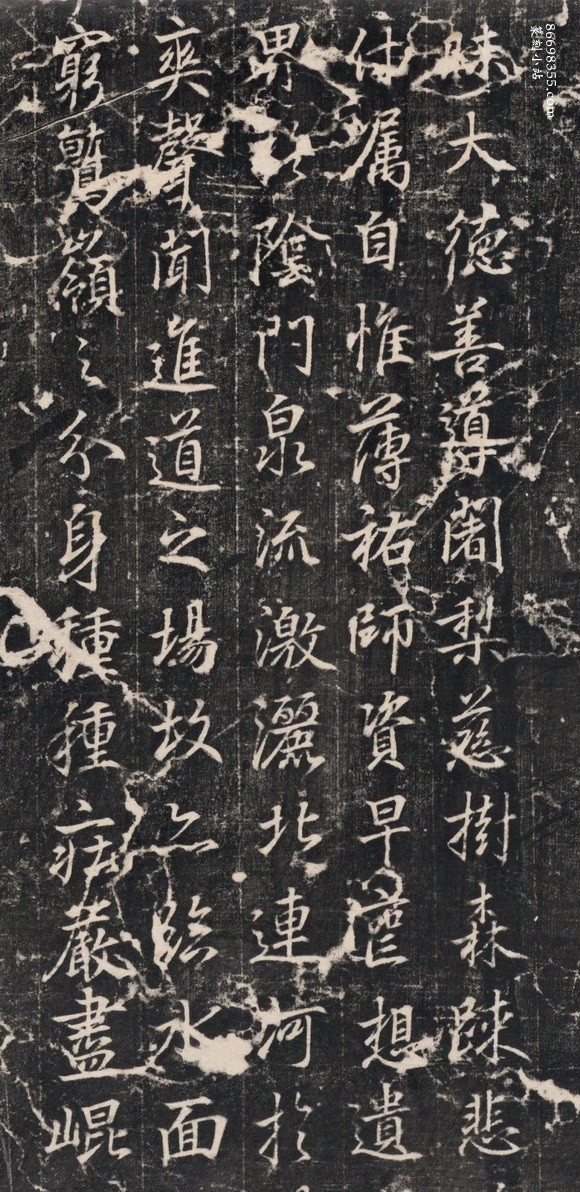 昧大德善導闍梨慈樹森踈悲
付属自惟薄祐師資早想遺
界之陰門泉流激灑北連河於
爽聲聞進道之場故亦臨水面
窮鷲嶺之分身種種莊嚴盡崐
86698355.com
篆刻小站